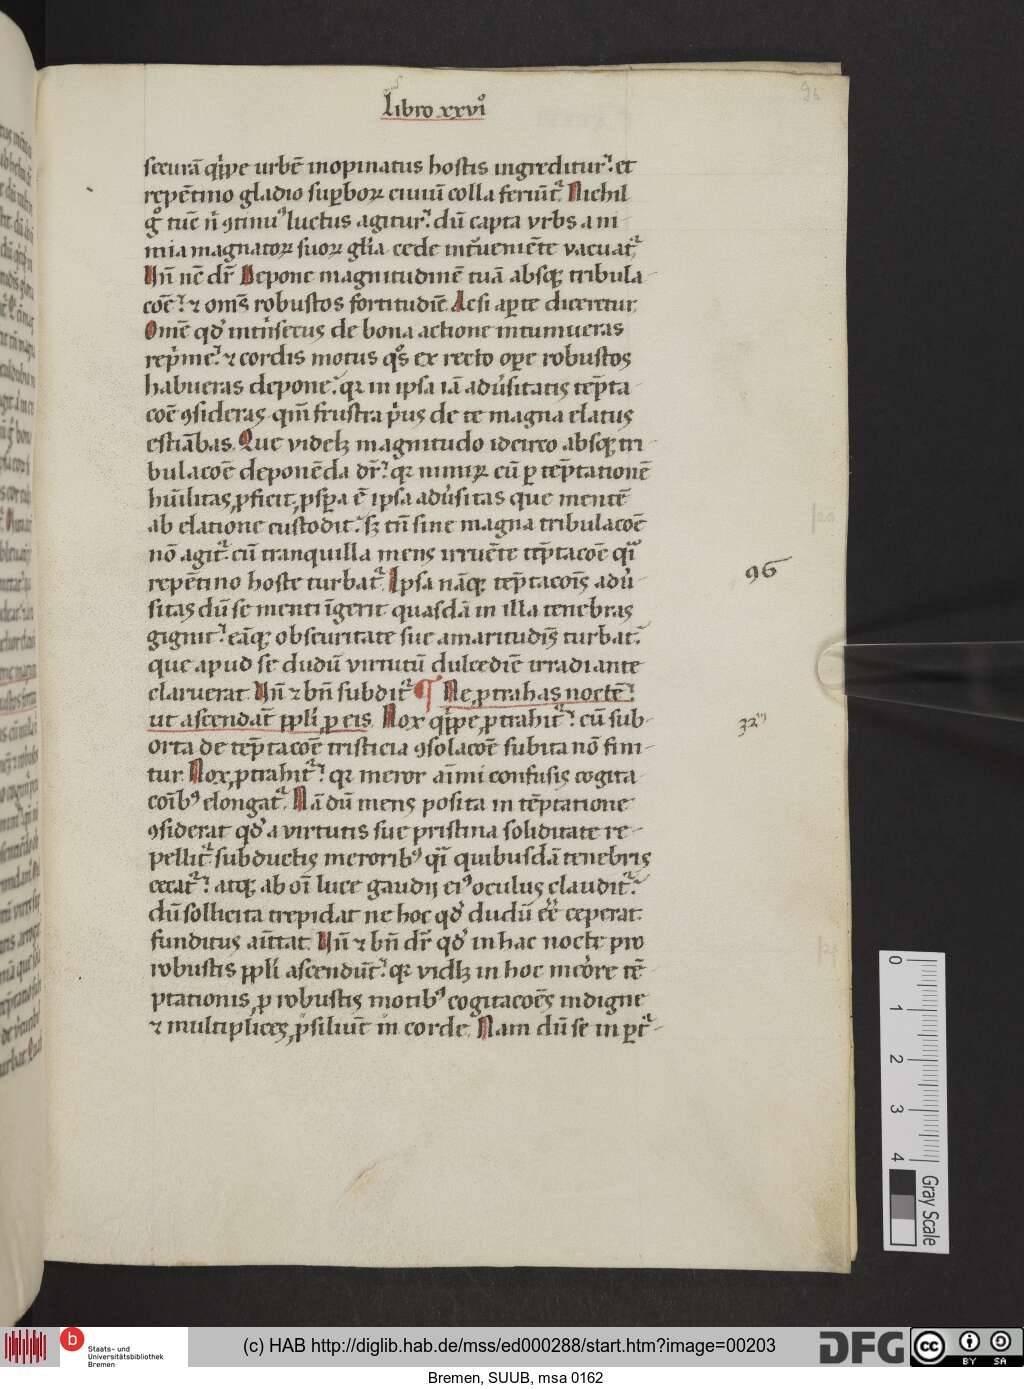 Libro xxvi°
securā qͥppe urbē inopinatus hostis ingreditur᷑. et
repētino gladio sup̲boꝝ ciuiū colla feriūt᷑. Nichil
gͦ tūc nͥ ꝯtinuꝰ luctus agitur᷑. dū capta vrbs a ni
mia magnatoꝝ suoꝝ gl̄ia cede int̄ueniēte vacuat᷑
Hn̄ nc̄ dr̄ Depone magnitudinē tuā absqꝫ tribula-
cōe᷑. ⁊ om̄s robustos fortitudīe. Acsi ap̲te diceretur
Om̄e qđ intͥnsecus de bona actione intumueras
rep̄me᷑. ⁊ cordis motus qͦs ex recto op̲e robustos
habueras depone᷑. qꝛ in ipsa iā adūsitatis tēpta-
cōe ꝯsideras. qm̄ frustra pͥus de te magna elatus
estiābas. Que videlꝫ magnitudo idcirco absqꝫ tri-
bulacōe deponēda dr̄᷑. qꝛ nimiꝝ cū p̲ tēptationē
hūilitas ꝓficit, ꝓsp̲a ē ipsa adūsitas que mentē
ab elatione custodit᷑. sꝫ tn̄ sine magna tribulacōe
nō agit᷑. cū tranquilla mens irruēte tēptacōe qͣi
repētino hoste turbat᷑. Ipsa nāqꝫ tēptacōis adū-
sitas dū se menti īgerit quasdā in illa tenebras
gignit᷑. eāqꝫ obscuritate sue amaritudīs turbat᷑.
que apud se dudū virtutū dulcedīe irradiante
claruerat. Hn̄ ⁊ bn̄ subdit᷑ ¶ Ne ꝓtrahas noctē᷑.
ut ascendāt ppl̄i ꝓ eis. Nox qͥppe ꝓtrahit᷑. cū sub-
orta de tēptacōe tristicia ꝯsolacōe subita nō fini-
tur. Nox ꝓtrahit᷑. qꝛ meror aīmi confusis cogita-
cōibꝰ elongat᷑. Nā dū mens posita in tēptatione
ꝯsiderat qđ a virtutis sue pristina soliditate re-
pellit᷑. subductis meroribꝰ qͣi quibusdā tenebris
cecat᷑. atqꝫ ab oī luce gaudij eiꝰ oculus claudit᷑.
dū sollicita trepidat ne hoc qđ dudū eē ceperat.
funditus aīttat. Hn̄ ⁊ bn̄ dr̄ qđ in hac nocte pro
robustis ppl̄i ascendūt᷑. qꝛ vidlꝫ in hoc mēore tē-
ptationis, ꝓ robustis motibꝰ cogitacōes indigne
⁊ multiplices, ꝓsiliūt in corde. Nam dū se in p̲t᷑-
96
32
(c) HAB http://diglib.hab.de/mss/ed000288/start.htm?image=00203
Bremen, SUUB, msa 0162
b
Staats- und
Universitätsbibliothek
Bremen
DFG
cc
BY SA
0
1
2
3
4
Gray Scale